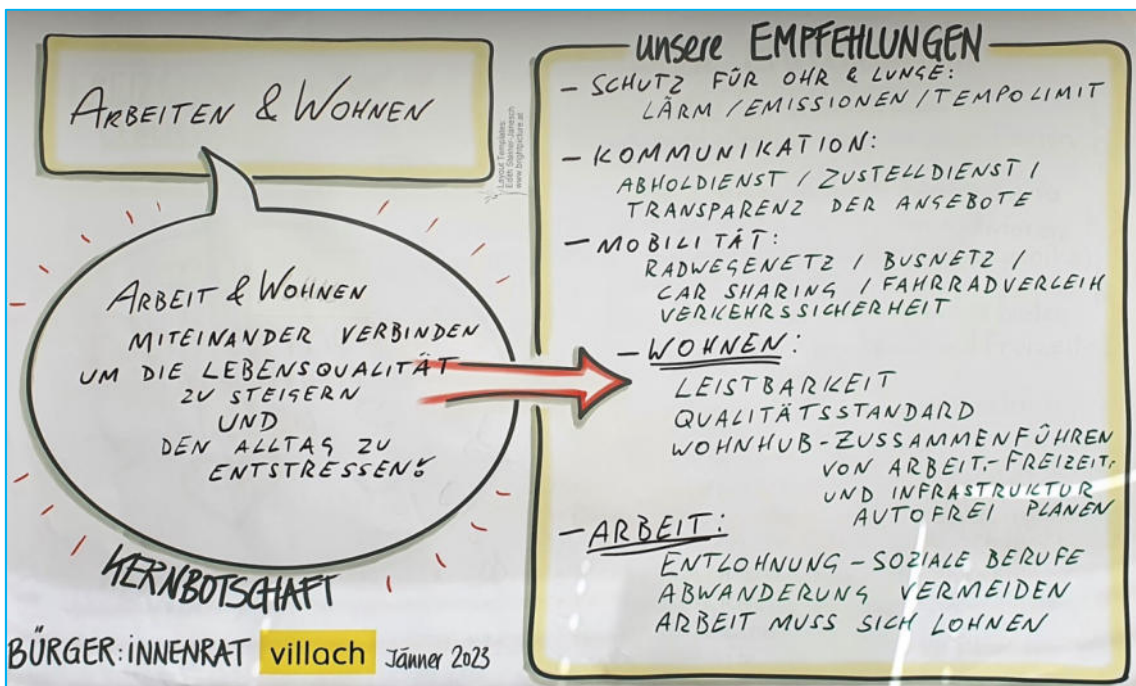 ARBEITEN & WOHNEN
Layout Templates:
www.brightpicture.at
ARBEIT & WOHNEN
MITEINANDER VERBINDEN
UM DIE LEBENSQUALITÄT
ZU STEIGERN
UND
DEN ALLTAG ZU
ENTSTRESSEN!
KERNBOTSCHAFT
BÜRGER:iNNENRAT villach Jänner 2023
unsere EMPFEHLUNGEN
- SCHUTZ FÜR OHR & LUNGE:
LÄRM / EMISSIONEN / TEMPOLIMIT
- KOMMUNIKATION:
ABHOLDIENST / ZUSTELLDIENST /
TRANSPARENZ DER ANGEBOTE
- MOBILITÄT:
RADWEGENETZ / BUSNETZ /
CAR SHARING / FAHRRADVERLEIH
VERKEHRSSICHERHEIT
- WOHNEN:
LEISTBARKEIT
QUALITÄTSSTANDARD
WOHNHUB - ZUSSAMMENFÜHREN
VON ARBEIT.- FREIZEIT,
UND INFRASTRUKTUR
AUTOFREI PLANEN
- ARBEIT:
ENTLOHNUNG - SOZIALE BERUFE
ABWANDERUNG VERMEIDEN
ARBEIT MUSS SICH LOHNEN